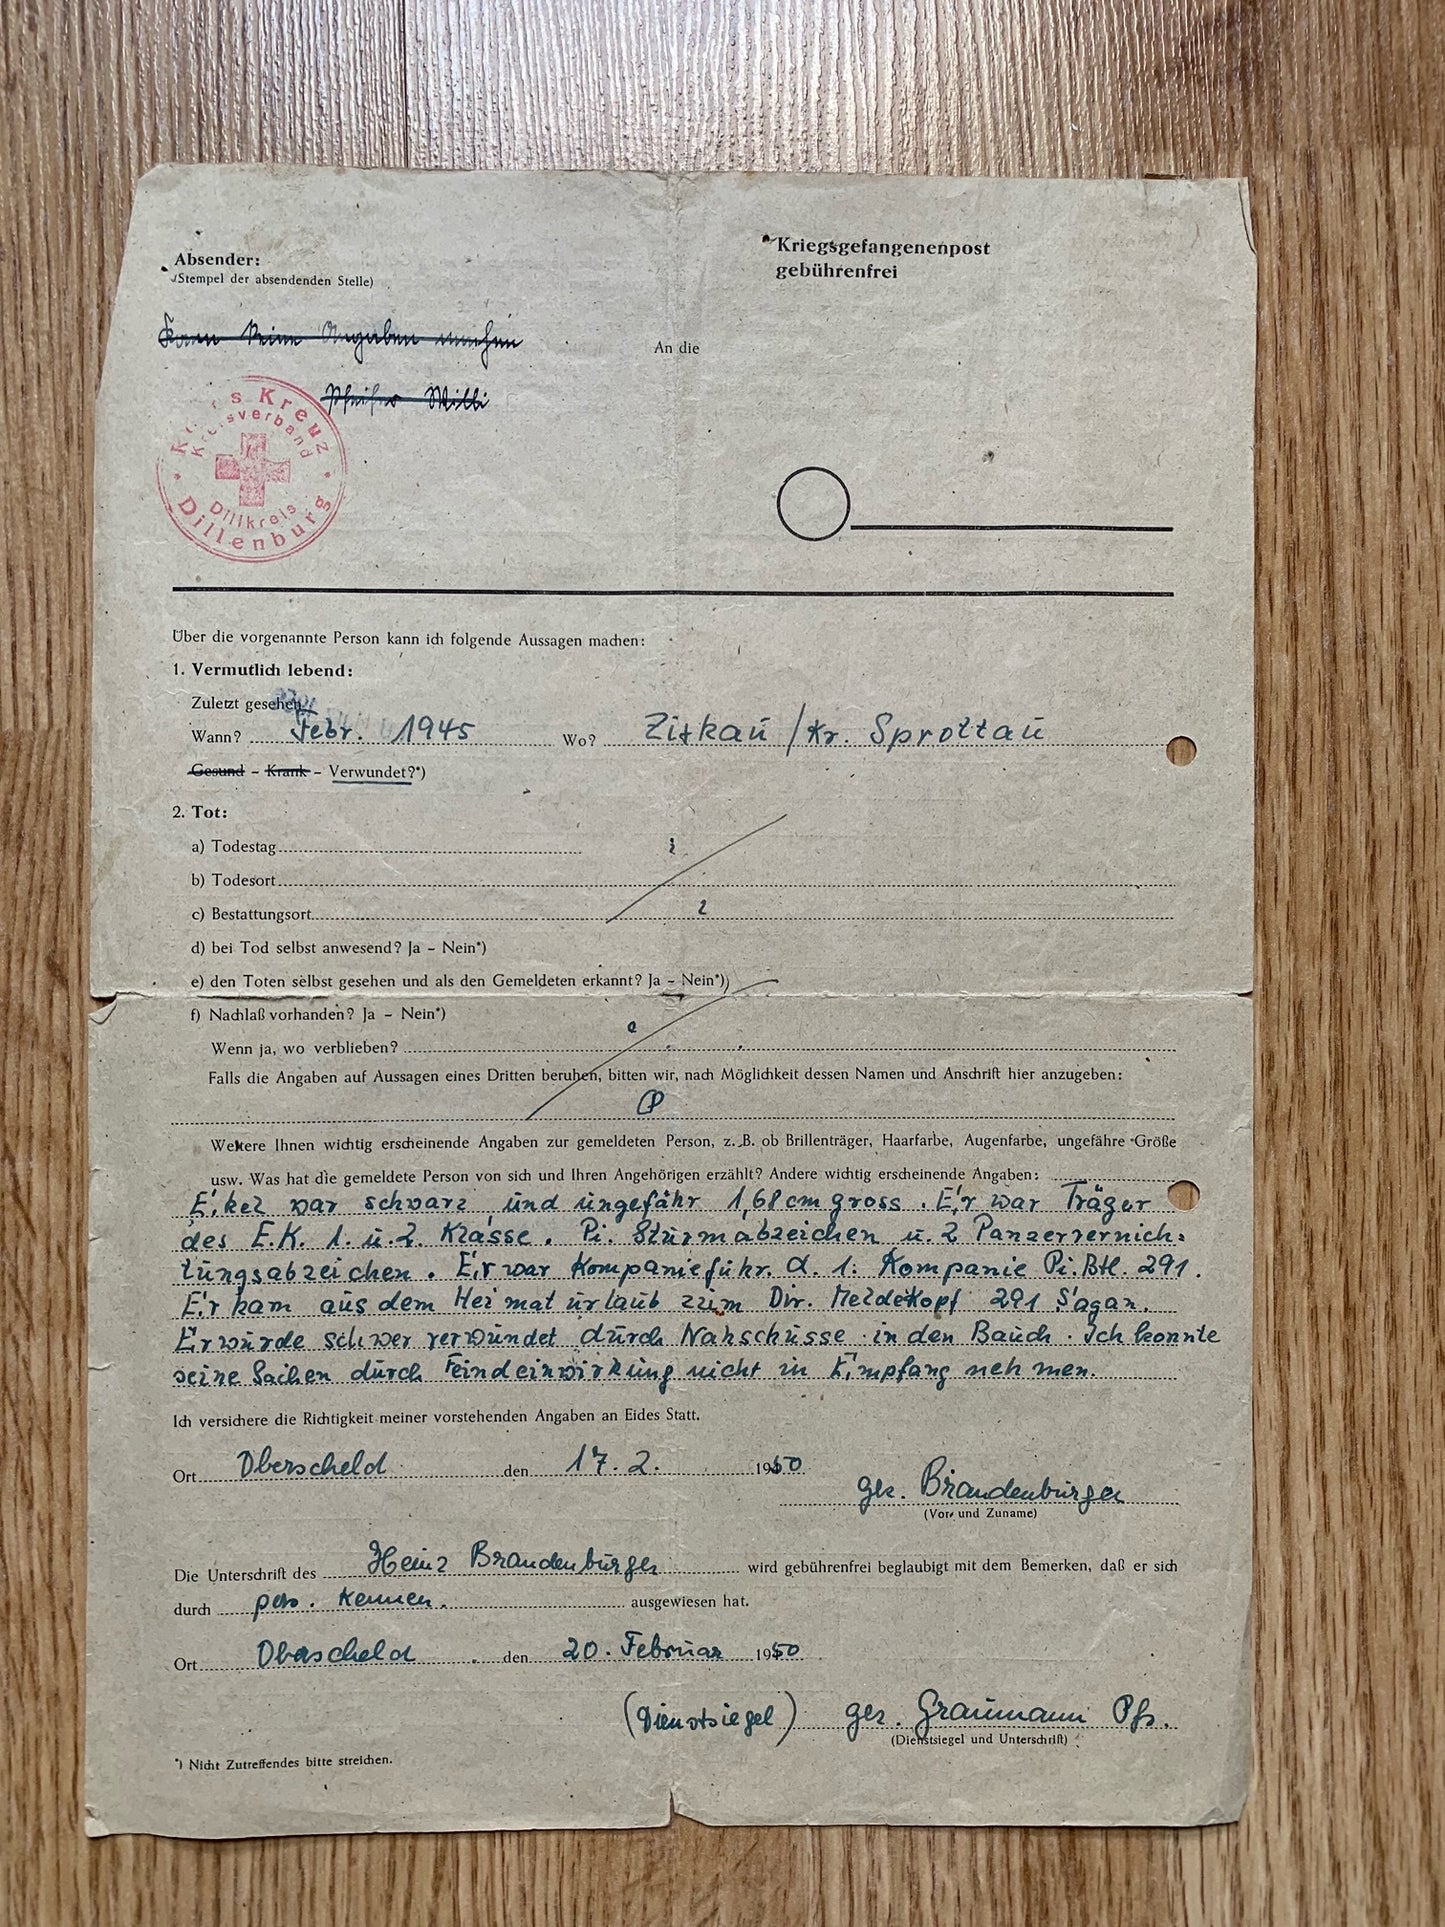 Absender:
(Stempel der absendenden Stelle)
Kriegsgefangenenpost
gebührenfrei
Kann keine Angaben machen
An die
Pfeifer Willi
s Kreuz
Kreisverband
Dillkreis
Dillenburg
Über die vorgenannte Person kann ich folgende Aussagen machen:
1. Vermutlich lebend:
Zuletzt gesehen
Wann? Febr. 1945 Wo? Zirkau / Kr. Sprottau
Gesund – Krank – Verwundet?*)
2. Tot:
a) Todestag
b) Todesort
c) Bestattungsort
d) bei Tod selbst anwesend? Ja – Nein*)
e) den Toten selbst gesehen und als den Gemeldeten erkannt? Ja – Nein*))
f) Nachlaß vorhanden? Ja – Nein*)
Wenn ja, wo verblieben?
Falls die Angaben auf Aussagen eines Dritten beruhen, bitten wir, nach Möglichkeit dessen Namen und Anschrift hier anzugeben:
Weitere Ihnen wichtig erscheinende Angaben zur gemeldeten Person, z. B. ob Brillenträger, Haarfarbe, Augenfarbe, ungefähre Größe
usw. Was hat die gemeldete Person von sich und Ihren Angehörigen erzählt? Andere wichtig erscheinende Angaben:
Eikel war schwarz und ungefähr 1,68 cm gross. Er war Träger
des E.K. 1. u. 2. Klasse. Pi. Sturmabzeichen u. 2 Panzervernich=
tungsabzeichen. Er war Kompanieführ. d. 1. Kompanie Pi. Btl. 291.
Er kam aus dem Heimaturlaub zum Div. Meldekopf 291 Sagan.
Er wurde schwer verwundet durch Nahschüsse in den Bauch. Ich konnte
seine Sachen durch Feindeinwirkung nicht in Empfang nehmen.
Ich versichere die Richtigkeit meiner vorstehenden Angaben an Eides Statt.
Ort Oberscheld den 17. 2. 1950
gez. Brandenburger
(Vor- und Zuname)
Die Unterschrift des Heinz Brandenburger wird gebührenfrei beglaubigt mit dem Bemerken, daß er sich
durch pers. Kennen. ausgewiesen hat.
Ort Oberscheld den 20. Februar 1950
(Dienstsiegel) gez. Graumann Pfr.
(Dienstsiegel und Unterschrift)
*) Nicht Zutreffendes bitte streichen.